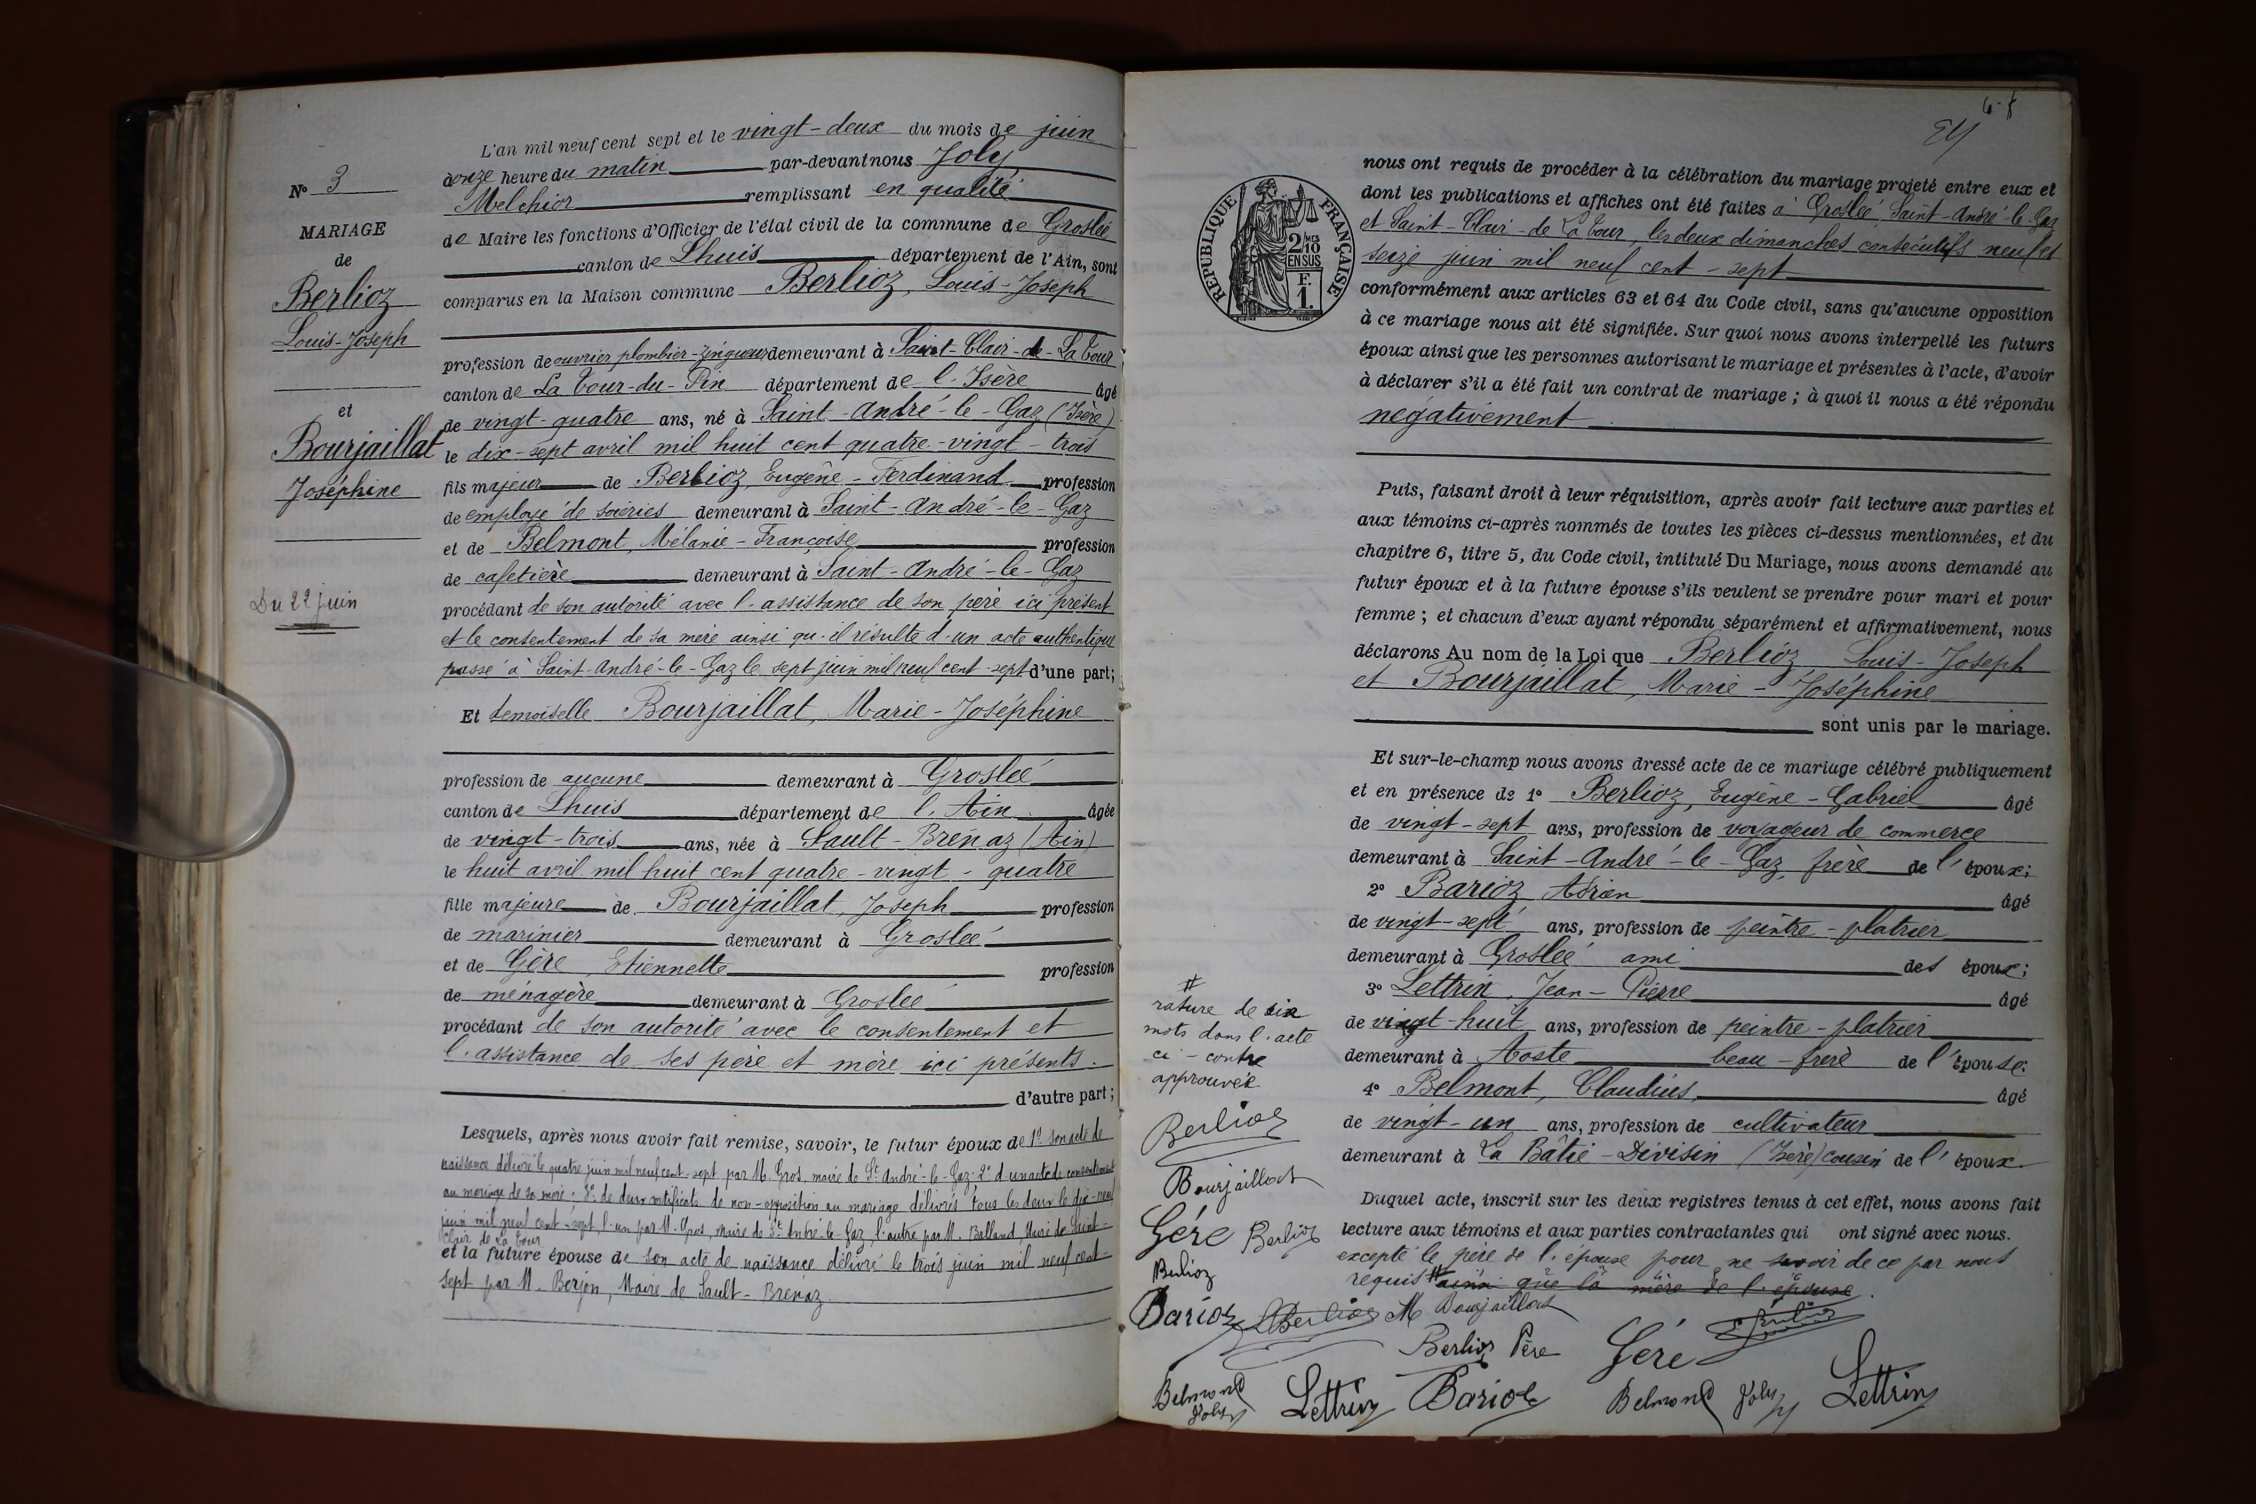 N° 3
MARIAGE
de
Berlioz
Louis-Joseph
et
Bourjaillat
Joséphine
Du 22 juin
L'an mil neuf cent sept et le vingt-deux du mois de juin
à onze heure du matin par-devant nous Joly
Melchior remplissant en qualité
de Maire les fonctions d'Officier de l'état civil de la commune de Groslée
canton de Lhuis département de l'Ain, sont
comparus en la Maison commune Berlioz, Louis-Joseph
profession de ouvrier plombier-zingueur demeurant à Saint-Clair-de-La Tour
canton de La Tour-du-Pin département de l'Isère âgé
de vingt-quatre ans, né à Saint-André-le-Gaz (Isère)
le dix-sept avril mil huit cent quatre-vingt-trois
fils majeur de Berlioz, Eugène-Ferdinand profession
de employé de soieries demeurant à Saint-André-le-Gaz
et de Belmont, Mélanie-Françoise profession
de cafetière demeurant à Saint-André-le-Gaz
procédant de son autorité avec l'assistance de son père ici présent
et le consentement de sa mère ainsi qu'il résulte d'un acte authentique
passé à Saint-André-le-Gaz le sept juin mil neuf cent-sept d'une part;
Et demoiselle Bourjaillat, Marie-Joséphine
profession de aucune demeurant à Groslée
canton de Lhuis département de l'Ain âgée
de vingt-trois ans, née à Sault-Brénaz (Ain)
le huit avril mil huit cent quatre-vingt-quatre
fille majeure de Bourjaillat, Joseph profession
de marinier demeurant à Groslée
et de Gère, Etiennette profession
de ménagère demeurant à Groslée
procédant de son autorité avec le consentement et
l'assistance de ses père et mère ici présents.
d'autre part;
Lesquels, après nous avoir fait remise, savoir, le futur époux de 1° son acte de
naissance délivré le quatre juin mil neuf cent-sept par M. Gros, maire de St-André-le-Gaz; 2° d'un acte de consentement
au mariage de sa mère; 3° de deux certificats de non-opposition au mariage délivrés tous les deux le dix-neuf
juin mil neuf cent-sept, l'un par M. Gros, maire de St-André-le-Gaz, l'autre par M. Balland, Maire de Saint-
Clair de La Tour
et la future épouse de son acte de naissance délivré le trois juin mil neuf cent-
sept par M. Berjon, Maire de Sault-Brénaz
6-8
RÉPUBLIQUE FRANÇAISE
2/10
EN SUS
F.
1.
nous ont requis de procéder à la célébration du mariage projeté entre eux et
dont les publications et affiches ont été faites à Groslée, Saint-André-le-Gaz
et Saint-Clair-de La Tour, les deux dimanches consécutifs neuf et
seize juin mil neuf cent-sept
conformément aux articles 63 et 64 du Code civil, sans qu'aucune opposition
à ce mariage nous ait été signifiée. Sur quoi nous avons interpellé les futurs
époux ainsi que les personnes autorisant le mariage et présentes à l'acte, d'avoir
à déclarer s'il a été fait un contrat de mariage; à quoi il nous a été répondu
négativement
Puis, faisant droit à leur réquisition, après avoir fait lecture aux parties et
aux témoins ci-après nommés de toutes les pièces ci-dessus mentionnées, et du
chapitre 6, titre 5, du Code civil, intitulé Du Mariage, nous avons demandé au
futur époux et à la future épouse s'ils veulent se prendre pour mari et pour
femme; et chacun d'eux ayant répondu séparément et affirmativement, nous
déclarons Au nom de la Loi que Berlioz, Louis-Joseph
et Bourjaillat, Marie-Joséphine
sont unis par le mariage.
Et sur-le-champ nous avons dressé acte de ce mariage célébré publiquement
et en présence de 1° Berlioz, Eugène-Gabriel âgé
de vingt-sept ans, profession de voyageur de commerce
demeurant à Saint-André-le-Gaz, frère de l'époux;
2° Barioz Adrien âgé
de vingt-sept ans, profession de peintre-platrier
demeurant à Groslée ami des époux;
3° Lettrin, Jean-Pierre âgé
de vingt-huit ans, profession de peintre-platrier
demeurant à Aoste beau-frère de l'épouse;
4° Belmont, Claudius, âgé
de vingt-un ans, profession de cultivateur
demeurant à La Bâtie-Divisin (Isère) cousin de l'époux.
Duquel acte, inscrit sur les deux registres tenus à cet effet, nous avons fait
lecture aux témoins et aux parties contractantes qui ont signé avec nous.
excepté le père de l'épouse pour ne savoir de ce par nous
requis # ainsi que la mère de l'épouse.
#
rature de six
mots dans l'acte
ci-contre
approuvée
Berlioz
Bourjaillat
Gère Berlioz
Berlioz
Barioz LBerlioz M Bourjaillat
Berlioz Père Géré E Berlioz
Belmont Lettrin Barioz Belmont Joly Lettrin
Joly